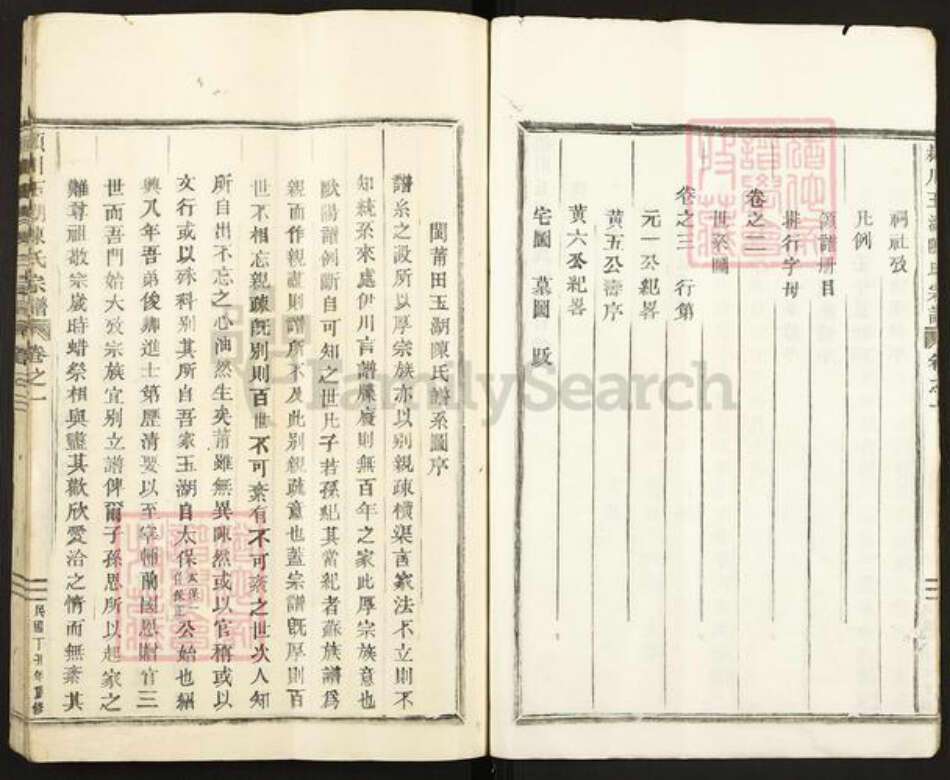 祠社攷
凡例
領譜册目
排行字母
卷之二
世系圖
卷之三 行第
元一公紀畧
黃五公壽序
黃六公紀畧
宅圖 墓圖 版
閩莆田玉湖陳氏譜系圖序
譜系之設所以厚宗族亦以别親疎橫渠言宗法不立則不
知統系來處伊川言譜牒廢則無百年之家此厚宗族意也
歐陽譜例斷自可知之世凡子若孫紀其當紀者蘇族譜爲
親而作親盡則譜所不及此别親疏意也蓋宗譜旣厚則百
世不相忘親疎旣别則百世不可紊有不可紊之世次人知
所自出不忘之心油然生矣莆雖無異陳然或以官稱或以
文行或以殊科别其所自吾家玉湖自太保公始也紹
興八年吾弟俊卿進士第歷清要以至宰輔前國恩贈官三
世而吾門始大致宗族宜别立譜俾爾子孫思所以起家之
難尊祖敬宗歲時蜡祭相與盡其歡欣愛洽之情而無紊其
玉湖陳氏宗譜 卷之一
民國丁丑年重修
FamilySearch